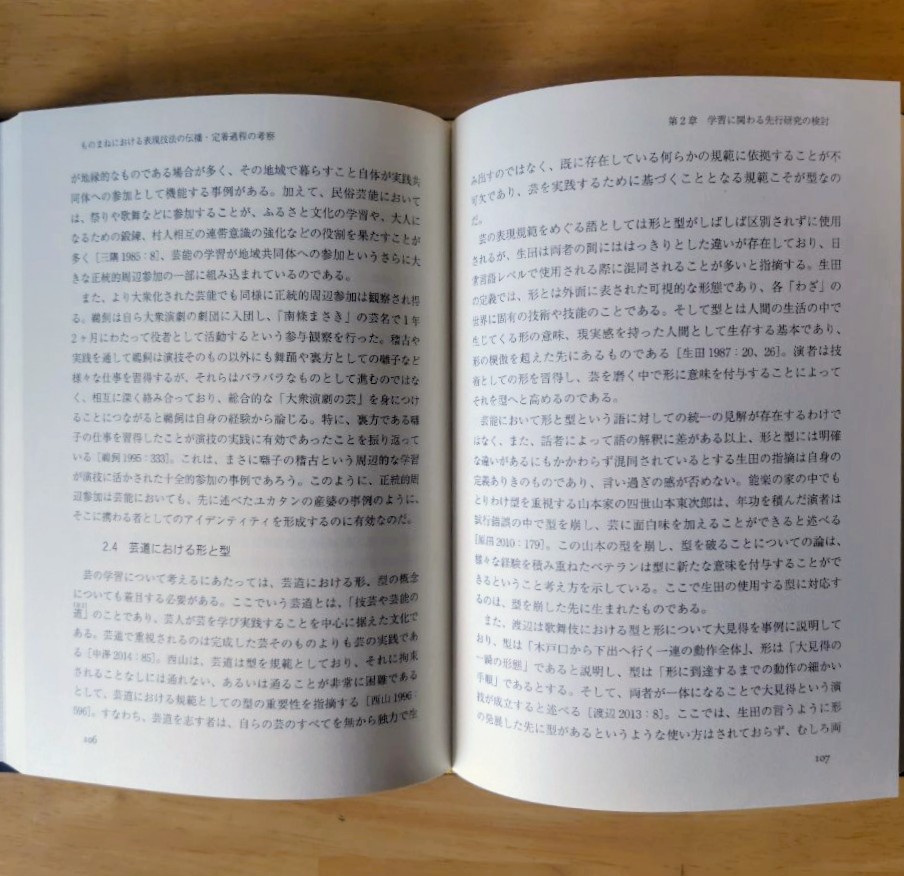 ものまねにおける表現技法の伝播・定着過程の考察
が地縁的なものである場合が多く、その地域で暮らすこと自体が実践共
同体への参加として機能する事例がある。加えて、民俗芸能において
は、祭りや歌舞などに参加することが、ふるさと文化の学習や、大人に
なるための鍛錬、村人相互の連帯意識の強化などの役割を果たすことが
多く［三隅 1985：8］、芸能の学習が地域共同体への参加というさらに大
きな正統的周辺参加の一部に組み込まれているのである。
また、より大衆化された芸能でも同様に正統的周辺参加は観察され得
る。鵜飼は自ら大衆演劇の劇団に入団し、「南條まさき」の芸名で1年
2ヶ月にわたって役者として活動するという参与観察を行った。稽古や
実践を通して鵜飼は演技そのもの以外にも舞踊や裏方としての囃子など
様々な仕事を習得するが、それらはバラバラなものとして進むのではな
く、相互に深く絡み合っており、総合的な「大衆演劇の芸」を身につけ
ることにつながると鵜飼は自身の経験から論じる。特に、裏方である囃
子の仕事を習得したことが演技の実践に有効であったことを振り返って
いる［鵜飼 1995：333］。これは、まさに囃子の稽古という周辺的な学習
が演技に活かされた十全的参加の事例であろう。このように、正統的周
辺参加は芸能においても、先に述べたユカタンの産婆の事例のように、
そこに携わる者としてのアイデンティティを形成するのに有効なのだ。
2.4 芸道における形と型
芸の学習について考えるにあたっては、芸道における形、型の概念
についても着目する必要がある。ここでいう芸道とは、「技芸や芸能の
道」のことであり、芸人が芸を学び実践することを中心に据えた文化で
ある。芸道で重視されるのは完成した芸そのものよりも芸の実践であ
る［中澤 2014：85］。西山は、芸道は型を規範としており、それに拘束
されることなしには通れない、あるいは通ることが非常に困難である
として、芸道における規範としての型の重要性を指摘する［西山 1996：
596］。すなわち、芸道を志す者は、自らの芸のすべてを無から独力で生
106
第2章 学習に関わる先行研究の検討
み出すのではなく、既に存在している何らかの規範に依拠することが不
可欠であり、芸を実践するために基づくこととなる規範こそが型なの
だ。
芸の表現規範をめぐる語としては形と型がしばしば区別されずに使用
されるが、生田は両者の間にははっきりとした違いが存在しており、日
常言語レベルで使用される際に混同されることが多いと指摘する。生田
の定義では、形とは外面に表された可視的な形態であり、各「わざ」の
世界に固有の技術や技能のことである。そして型とは人間の生活の中で
生じてくる形の意味、現実感を持った人間として生存する基本であり、
形の模倣を超えた先にあるものである［生田 1987：20、26］。演者は技
術としての形を習得し、芸を磨く中で形に意味を付与することによって
それを型へと高めるのである。
芸能において形と型という語に対しての統一の見解が存在するわけで
はなく、また、話者によって語の解釈に差がある以上、形と型には明確
な違いがあるにもかかわらず混同されているとする生田の指摘は自身の
定義ありきのものであり、言い過ぎの感が否めない。能楽の家の中でも
とりわけ型を重視する山本家の四世山本東次郎は、年功を積んだ演者は
試行錯誤の中で型を崩し、芸に面白味を加えることができると述べる
［原田 2010：179］。この山本の型を崩し、型を破ることについての論は、
様々な経験を積み重ねたベテランは型に新たな意味を付与することがで
きるということ考え方を示している。ここで生田の使用する型に対応す
るのは、型を崩した先に生まれたものである。
また、渡辺は歌舞伎における型と形について大見得を事例に説明して
おり、型は「木戸口から下出へ行く一連の動作全体」、形は「大見得の
一瞬の形態」であると説明し、型は「形に到達するまでの動作の細かい
手順」であるとする。そして、両者が一体になることで大見得という演
技が成立すると述べる［渡辺 2013：8］。ここでは、生田の言うように形
の発展した先に型があるというような使い方はされておらず、むしろ両
107